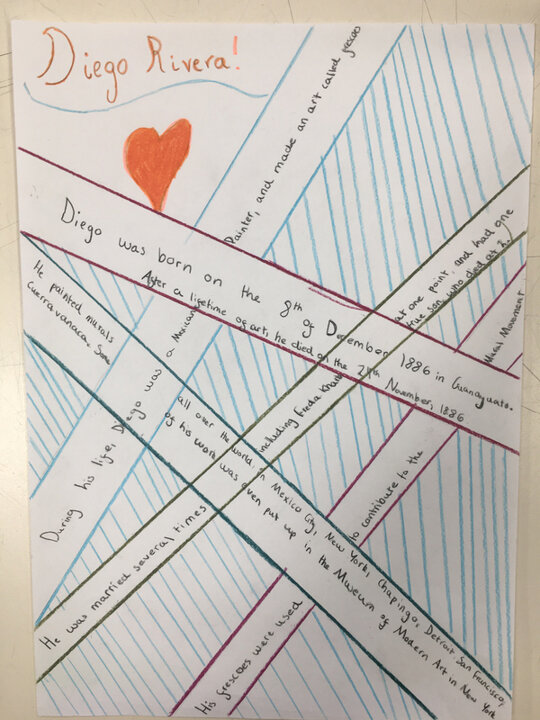 Diego Rivera!
Diego was born on the 8th of December 1886 in Guanajuato.
After a lifetime of art, he died on the 24th November, 1886
During his life, Diego was a Mexican
Painter, and made an art called frescoes
He painted murals all over the world, in Mexico City, New York, Chapingo, Detroit, San Francisco,
Cuernavanara. Some of his work was even put up in the Museum of Modern Art in New York
He was married several times including Frida Khan at one point, and had one
true son, who died at 2.
His frescoes were used to contribute to the Mural Movement